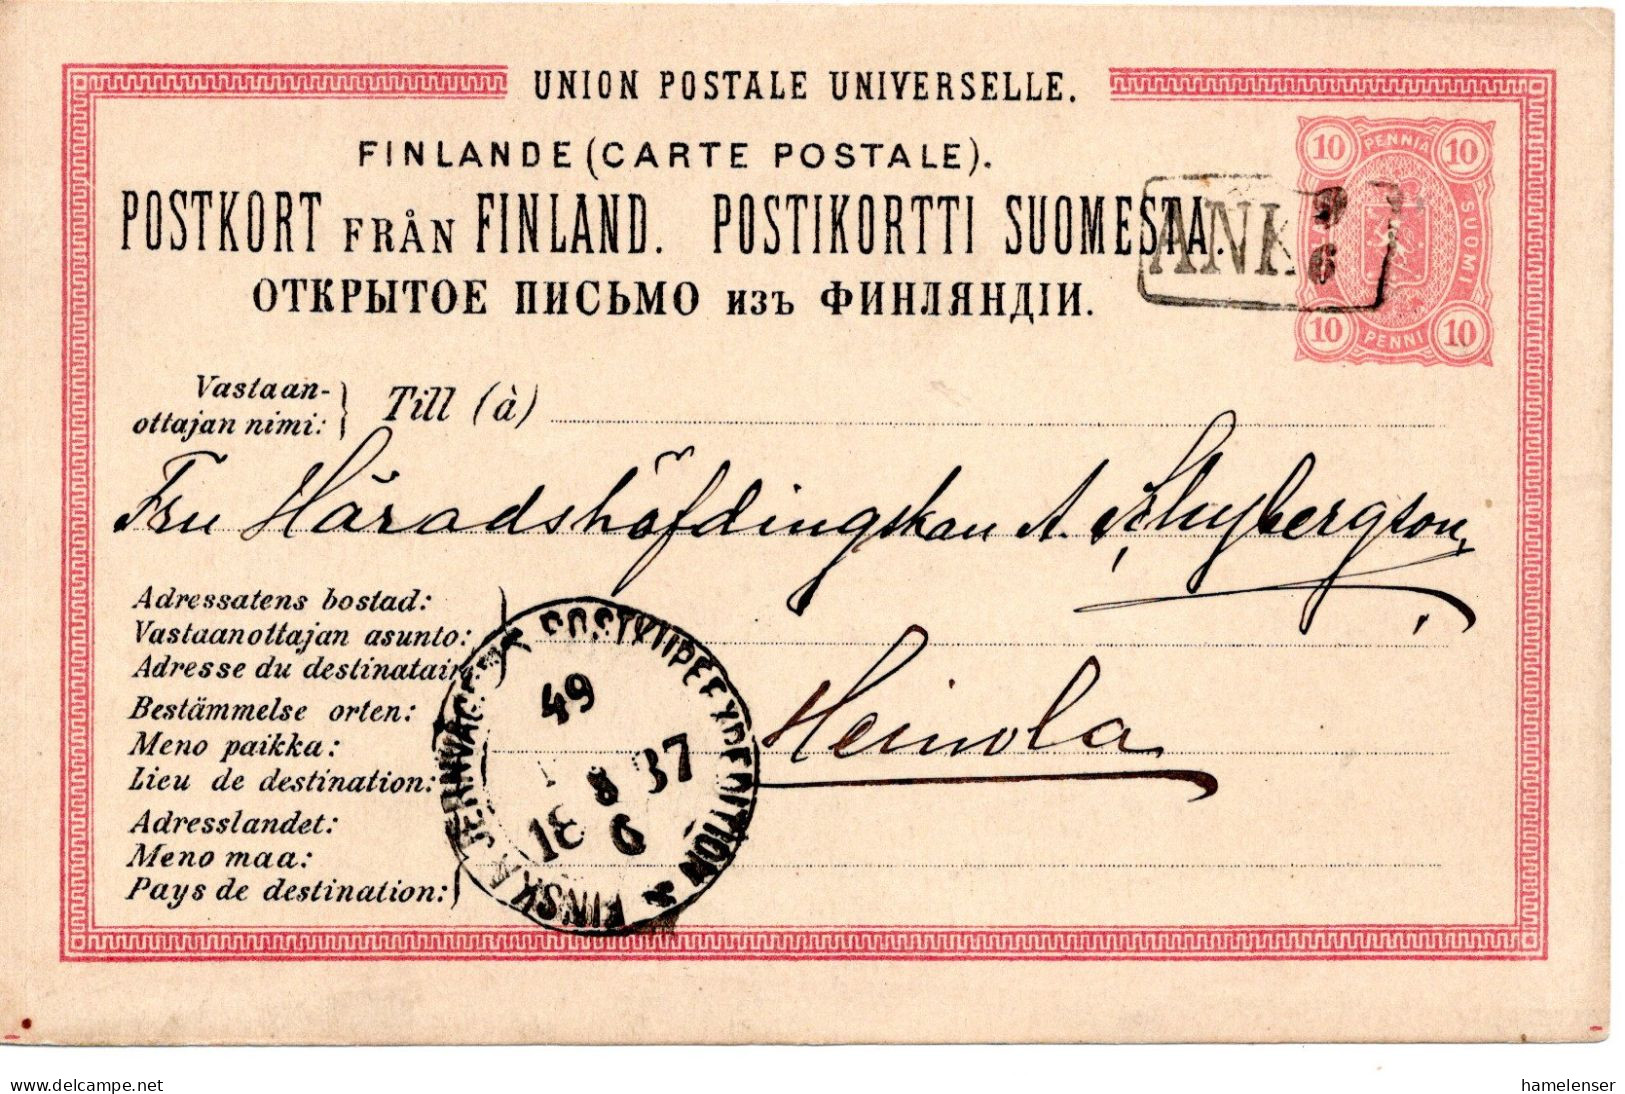 UNION POSTALE UNIVERSELLE.
FINLANDE (CARTE POSTALE).
POSTKORT FRÅN FINLAND. POSTIKORTTI SUOMESTA.
ОТКРЫТОЕ ПИСЬМО изъ ФИНЛЯНДІИ.
10 PENNIÄ 10
SUOMI
10 PENNI 10
ANK
9
6
Vastaan-
ottajan nimi:
Till (à)
Fru Häradshöfdingskan A.
Adressatens bostad:
Vastaanottajan asunto:
Adresse du destinataire:
Bestämmelse orten:
Meno paikka:
Lieu de destination:
Heinola
Adresslandet:
Meno maa:
Pays de destination:
FINSKA JERNVÄGENS POSTKUPEEXPEDITION
49
18 8 87
6
delcampe.net
hamelenser